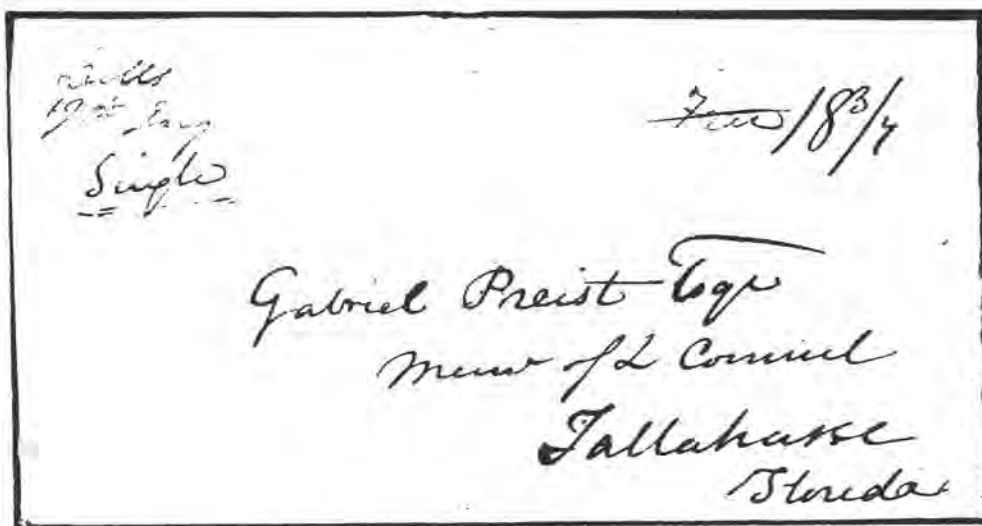 19th
Single
Free 18 3/4
Gabriel Preist Esqr
of L Council
Tallahasse
Florida